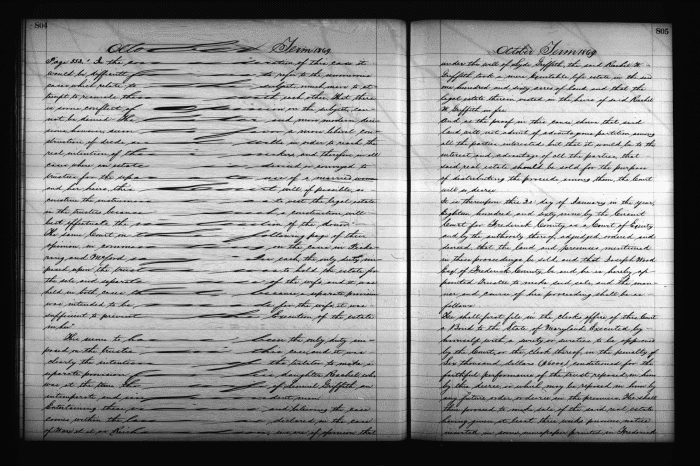 804
October Term 1869
Page 353. "In the con sideration of this case it
would be difficult to refer to the numerous
cases which relate to subject, much more to at-
tempt to reconcile them with each other. That there
is some conflict of in the subject, can
not be denied. The and more modern deci-
sions however, seem favor a more liberal con-
struction of deeds and wills in order to reach the
real intention of the makers, and therefore in all
cases where an estate is devised or conveyed to
trustees for the separate use of a married woman
and her heirs, this Court will if possible, so
construe the instrument as to vest the legal estate
in the trustees because such a construction, will
best effectuate the intention of the donor."
The same Court on the following page of their
opinion in comment in the cases in
and McCord each the only duty im-
posed upon the trustees was to hold the estate for
the sole and separate use of the wife and it was
held in both cases that because a separate provision
was intended to be made for the wife it was
sufficient to prevent the execution of the estate
in her."
This seems to have been the only duty im-
posed on the trustee in this case, and it was
clearly the intention of the testator to make a
separate provision for his daughter Rachel who
was at the time the wife of Samuel Griffith, an
intemperate and man
Entertaining these views and believing the case
comes within the law as declared in the case
of Ware vs Richardson, we are of opinion that
805
October Term 1869
under the will of Lyde Griffith, the said Rachel W.
Griffith took a mere equitable life estate in the said
one hundred and sixty acres of land and that the
legal estate therein vested in the heirs of said Rachel
W. Griffith in fee
And as the proof in this cause shows that said
land will not admit of advantageous partition among
all the parties interested but that it would be to the
interest and advantage of all the parties, that
said real estate should be sold for the purpose
of distributing the proceeds among them, the Court
will so decree
It is thereupon this 20 day of January in the year
Eighteen hundred and sixty nine by the Circuit
Court for Frederick County, as a Court of Equity
and by the authority thereof adjudged, ordered, and
decreed, that the land and premises mentioned
in these proceedings be sold and that Joseph Wood
Esq. of Frederick County be and he is hereby ap-
pointed Trustee to make said sale, and the man-
ner and course of his proceeding shall be as
follows
He shall first file in the clerks office of this Court
a Bond to the State of Maryland executed by
himself, with a surety or sureties to be approved
by the Court, or the clerk thereof in the penalty of
Six thousand dollars conditioned for the
faithful performance of the trust reposed in him
by this decree, or which may be reposed in him by
any future order, or decree in the premises. He shall
then proceed to make sale of the said real estate
having given at least three weeks previous notice
inserted in some newspaper printed in Frederick